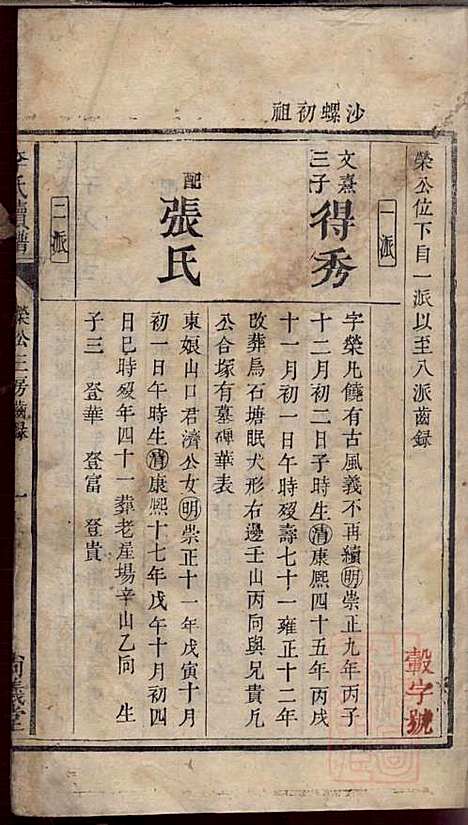 沙螺初祖
榮公位下自一派以至八派齒録
一派
文熹三子
得秀
字榮凡饒有古風義不再續明崇正九年丙子
十二月初二日子時生清康熙四十五年丙戌
十一月初一日午時歿壽七十一雍正十二年
改葬烏石塘眠犬形右邊壬山丙向與兄貴凡
公合塚有墓碑華表
配
張氏
東娘山口君濟公女明崇正十一年戊寅十月
初一日午時生清康熙十七年戊午十月初四
日巳時歿年四十一葬老屋場辛山乙向　生
子三　登華　登富　登貴
二派
李氏續譜
榮公三房齒録
一
尙義堂
轂字號